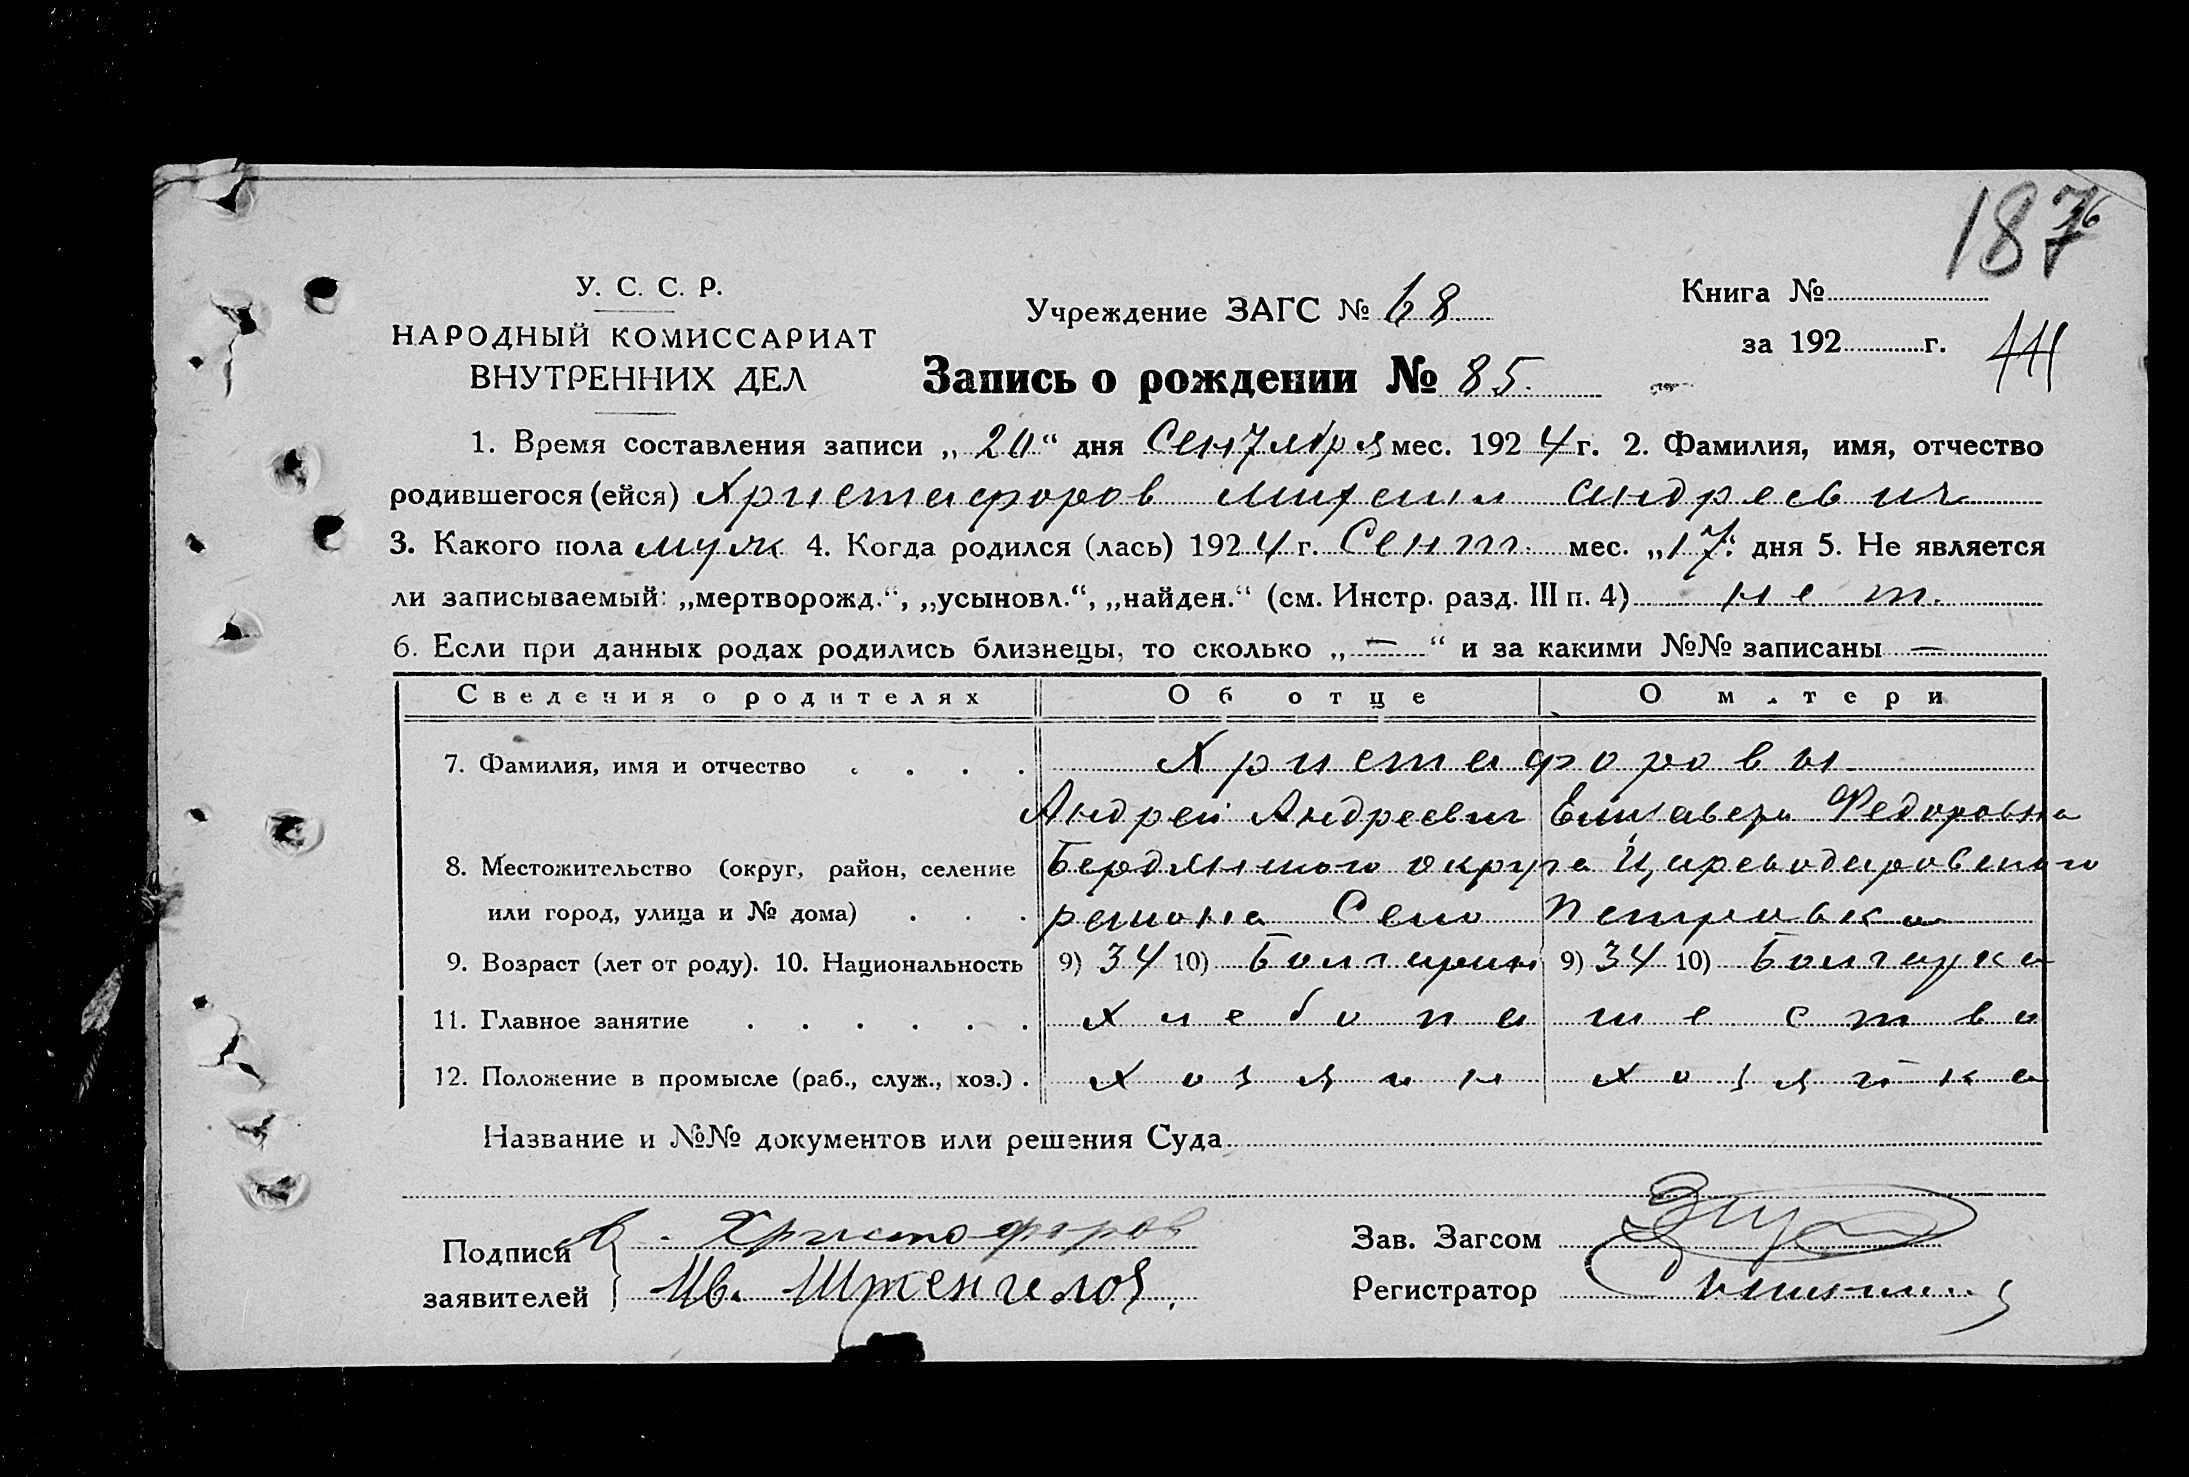 187
У. С. С. Р.
НАРОДНЫЙ КОМИССАРИАТ
ВНУТРЕННИХ ДЕЛ
Учреждение ЗАГС № 68
Книга №
за 192 г.
Запись о рождении № 85.
1. Время составления записи „20“ дня Сентября мес. 1924 г. 2. Фамилия, имя, отчество
родившегося (ейся) Христафоров Михаил Андреевич
3. Какого пола муж 4. Когда родился (лась) 1924 г. Сент. мес. „17“ дня 5. Не является
ли записываемый: „мертворожд.“, „усыновл.“, „найден.“ (см. Инстр. разд. III п. 4) нет.
6. Если при данных родах родились близнецы, то сколько „—“ и за какими №№ записаны —
Сведения о родителях Об отце О матери
7. Фамилия, имя и отчество . . . . Христафоровы
Андрей Андреевич Елизавета Федоровна
8. Местожительство (округ, район, селение Бердянского округа Цареводаровского
или город, улица и № дома) . . . района Село Петровка
9. Возраст (лет от роду). 10. Национальность 9) 34 10) Болгарин 9) 34 10) Болгарка
11. Главное занятие . . . . . . Хлебопашество
12. Положение в промысле (раб., служ., хоз.) . Хозяин Хозяйка
Название и №№ документов или решения Суда
Подписи А. Христофоров
заявителей Ив.
Зав. Загсом
Регистратор